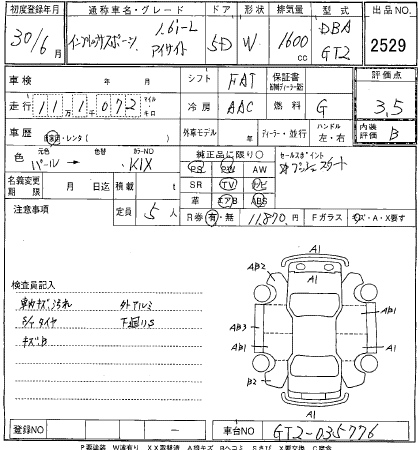 初度登録年月 通称車名・グレード ドア 形状 排気量 型式 出品NO.
30/6月 インプレッサスポーツ 1.6i-L アイサイト 5D W 1600cc DBA GT2 2529
車検 年 月 シフト FAT 保証書 評価点
走行 11万1072 マイル キロ 冷房 AAC 燃料 G 3.5
車歴 自家用・レンタ 外車モデル ディーラー・並行 ハンドル 左・右 内装評価 B
色 パール → 色替 カラーNO K1X 純正品に限り○ セールスポイント
PS PW AW プッシュスタート
名義変更期限 月 日迄 積載 t SR TV ナビ
革 エアB ABS
注意事項 定員 5人 R券 有・無 11,870円 Fガラス キズ・A・X要す
検査員記入
車内キズ汚れ 外アルミ
S/Aタイヤ 下廻りS
キズB
A1
AB2 A1
AB1
AB3
AB1 A1
B2 A2
A1
登録NO - 車台NO GT2-035776